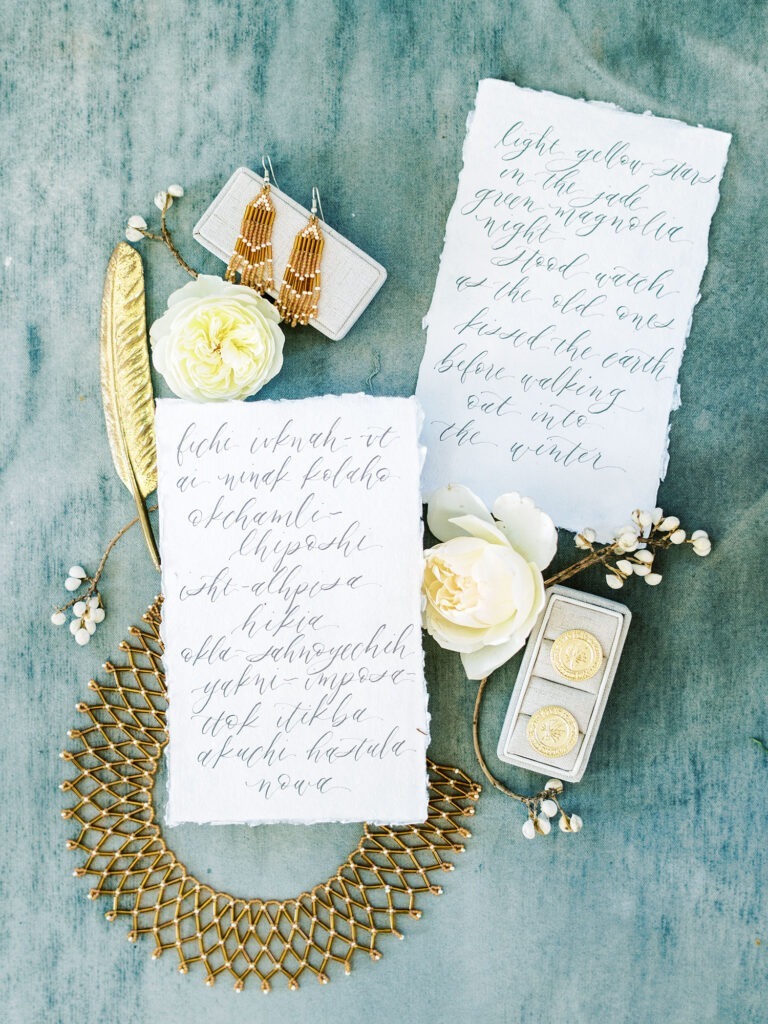 fichi lvknah-vt
ai ninak kolaho
okchamli-
lhiposhi
isht-alhpisa
hikia
okla-sahnoyechih
yakni-imposa-
ttok itikba
akuchi hastula
nowa
light yellow stars
in the jade
green magnolia
night
stood watch
as the old ones
kissed the earth
before walking
out into
the winter